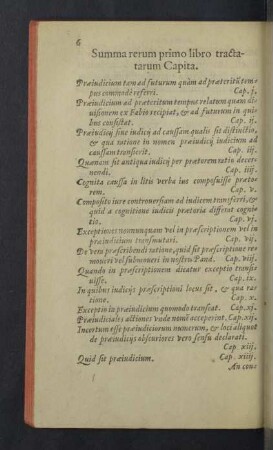 6
Summa rerum primo libro tracta-
tarum Capita.
Præiudicium tam ad futurum quàm ad præteritũ tem-
pus commodè referri. Cap. j.
Præiudicium ad præteritum tempus relatum quam di-
uisionem ex Fabio recipiat, & ad futurum in qui-
bus consistat. Cap. ij.
Præiudicij siue indicij ad caussam qualis sit distinctio,
& qua ratione is nomen præiudicij iudicium ad
caussam transierit. Cap. iij.
Quænam sit antiqua iudicij per prætorem ratio decer-
nendi. Cap. iiij.
Cognita caussa in litis verba ius composuisse præto-
rem. Cap. v.
Composito iure controuersiam ad iudicem transferri, &
quid a cognitione iudicij prætoria differat cognitio
Cap. vj.
Exceptiones nonnunquam vel in præscriptionem vel in
præiudicium transmutari. Cap. vij.
De vera præscribendi ratione, quid sit præscriptione re-
moueri vel submoueri in nostris Pand. Cap. viij.
Quando in præscriptionem dicatur exceptio transi-
uisse. Cap. ix.
In quibus indicijs præscriptioni locus sit, & qua ra-
tione. Cap. x.
Exceptio in præiudicium quomodo transeat. Cap. xj.
Præiudiciales actiones vnde nomẽ acceperint. Cap. xij.
Incertum esse præiudiciorum numerum, & loci aliquot
de præiudicijs obscuriores vero sensu declarati.
Cap. xiij.
Quid sit præiudicium. Cap. xiiij.
An cous